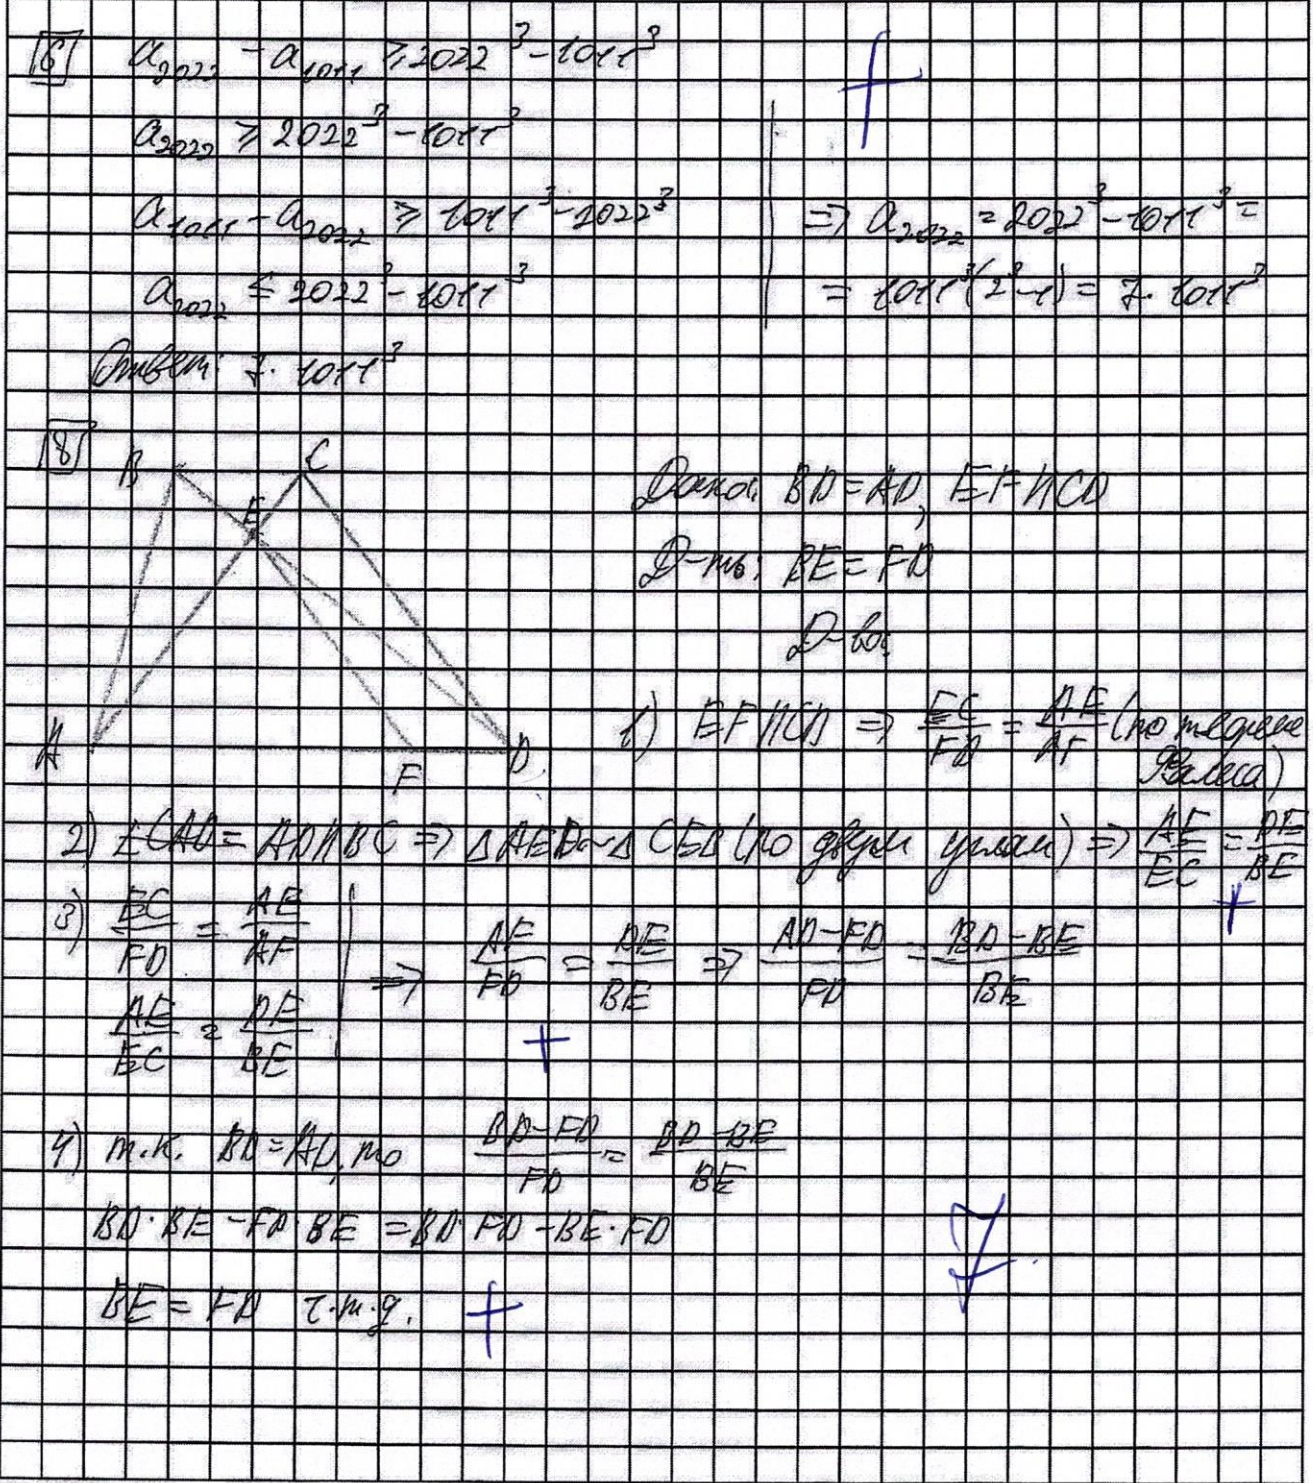 6 a₂₀₂₂ - a₁₀₁₁ ⩾ 2022³ - 1011³
+
a₂₀₂₂ ⩾ 2022³ - 1011³
a₁₀₁₁ - a₂₀₂₂ ⩾ 1011³ - 2022³ | => a₂₀₂₂ = 2022³ - 1011³ =
a₂₀₂₂ ⩽ 2022³ - 1011³ | = 1011³(2³-1) = 7 · 1011³
Ответ: 7 · 1011³
8
B C
E
A F D
Дано: BD = AD, EF || CD
Д-ть: BE = FD
Д-во:
1) EF || CD => EC/FD = AE/AF (по теореме Фалеса)
2) ECAD = AD || BC => △AED ~ △CEB (по двум углам) => AE/EC = DE/BE
+
3) EC/FD = AE/AF
AE/EC = DE/BE
=> AF/FD = DE/BE => AD-FD/FD = BD-BE/BE
+
4) т.к. BD = AD, то BD-FD/FD = BD-BE/BE
BD·BE - FD·BE = BD·FD - BE·FD
BE = FD ч.т.д. +
7